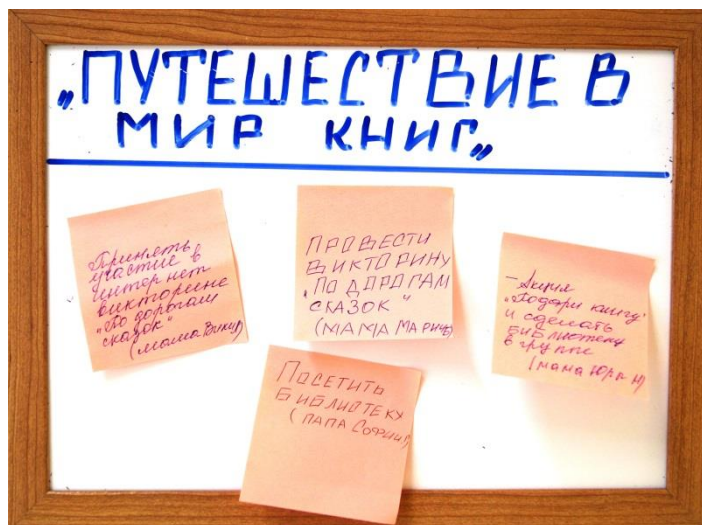 „ПУТЕШЕСТВИЕ В
МИР КНИГ„
Принять
участие в
интернет
викторине
"По дорогам
сказок"
(мама Вики)
ПРОВЕСТИ
ВИКТОРИНУ
„ПО ДОРОГАМ
СКАЗОК"
(МАМА
- Акция
„Подари книгу"
и сделать
библиотеку
в группе
(мама Юры Н)
ПОСЕТИТЬ
БИБЛИОТЕКУ
(ПАПА СОФИИ)